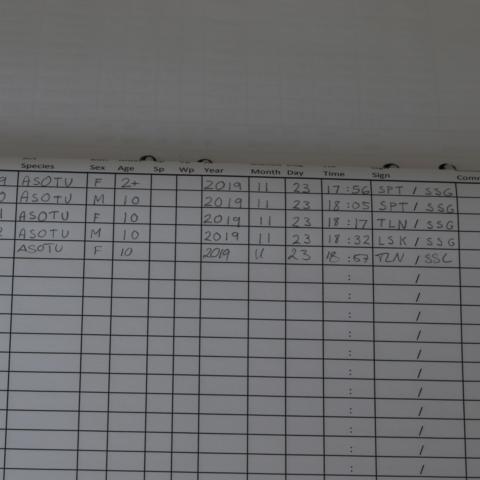 Species Sex Age Sp Wp Year Month Day Time Sign Comm
9 ASOTU F 2+ 2019 11 23 17:56 SPT / SSG
0 ASOTU M 10 2019 11 23 18:05 SPT / SSG
1 ASOTU F 10 2019 11 23 18:17 TLN / SSG
2 ASOTU M 10 2019 11 23 18:32 LSK / SSG
ASOTU F 10 2019 11 23 18:57 TLN / SSC
: /
: /
: /
: /
: /
: /
: /
: /
: /
: /
: /